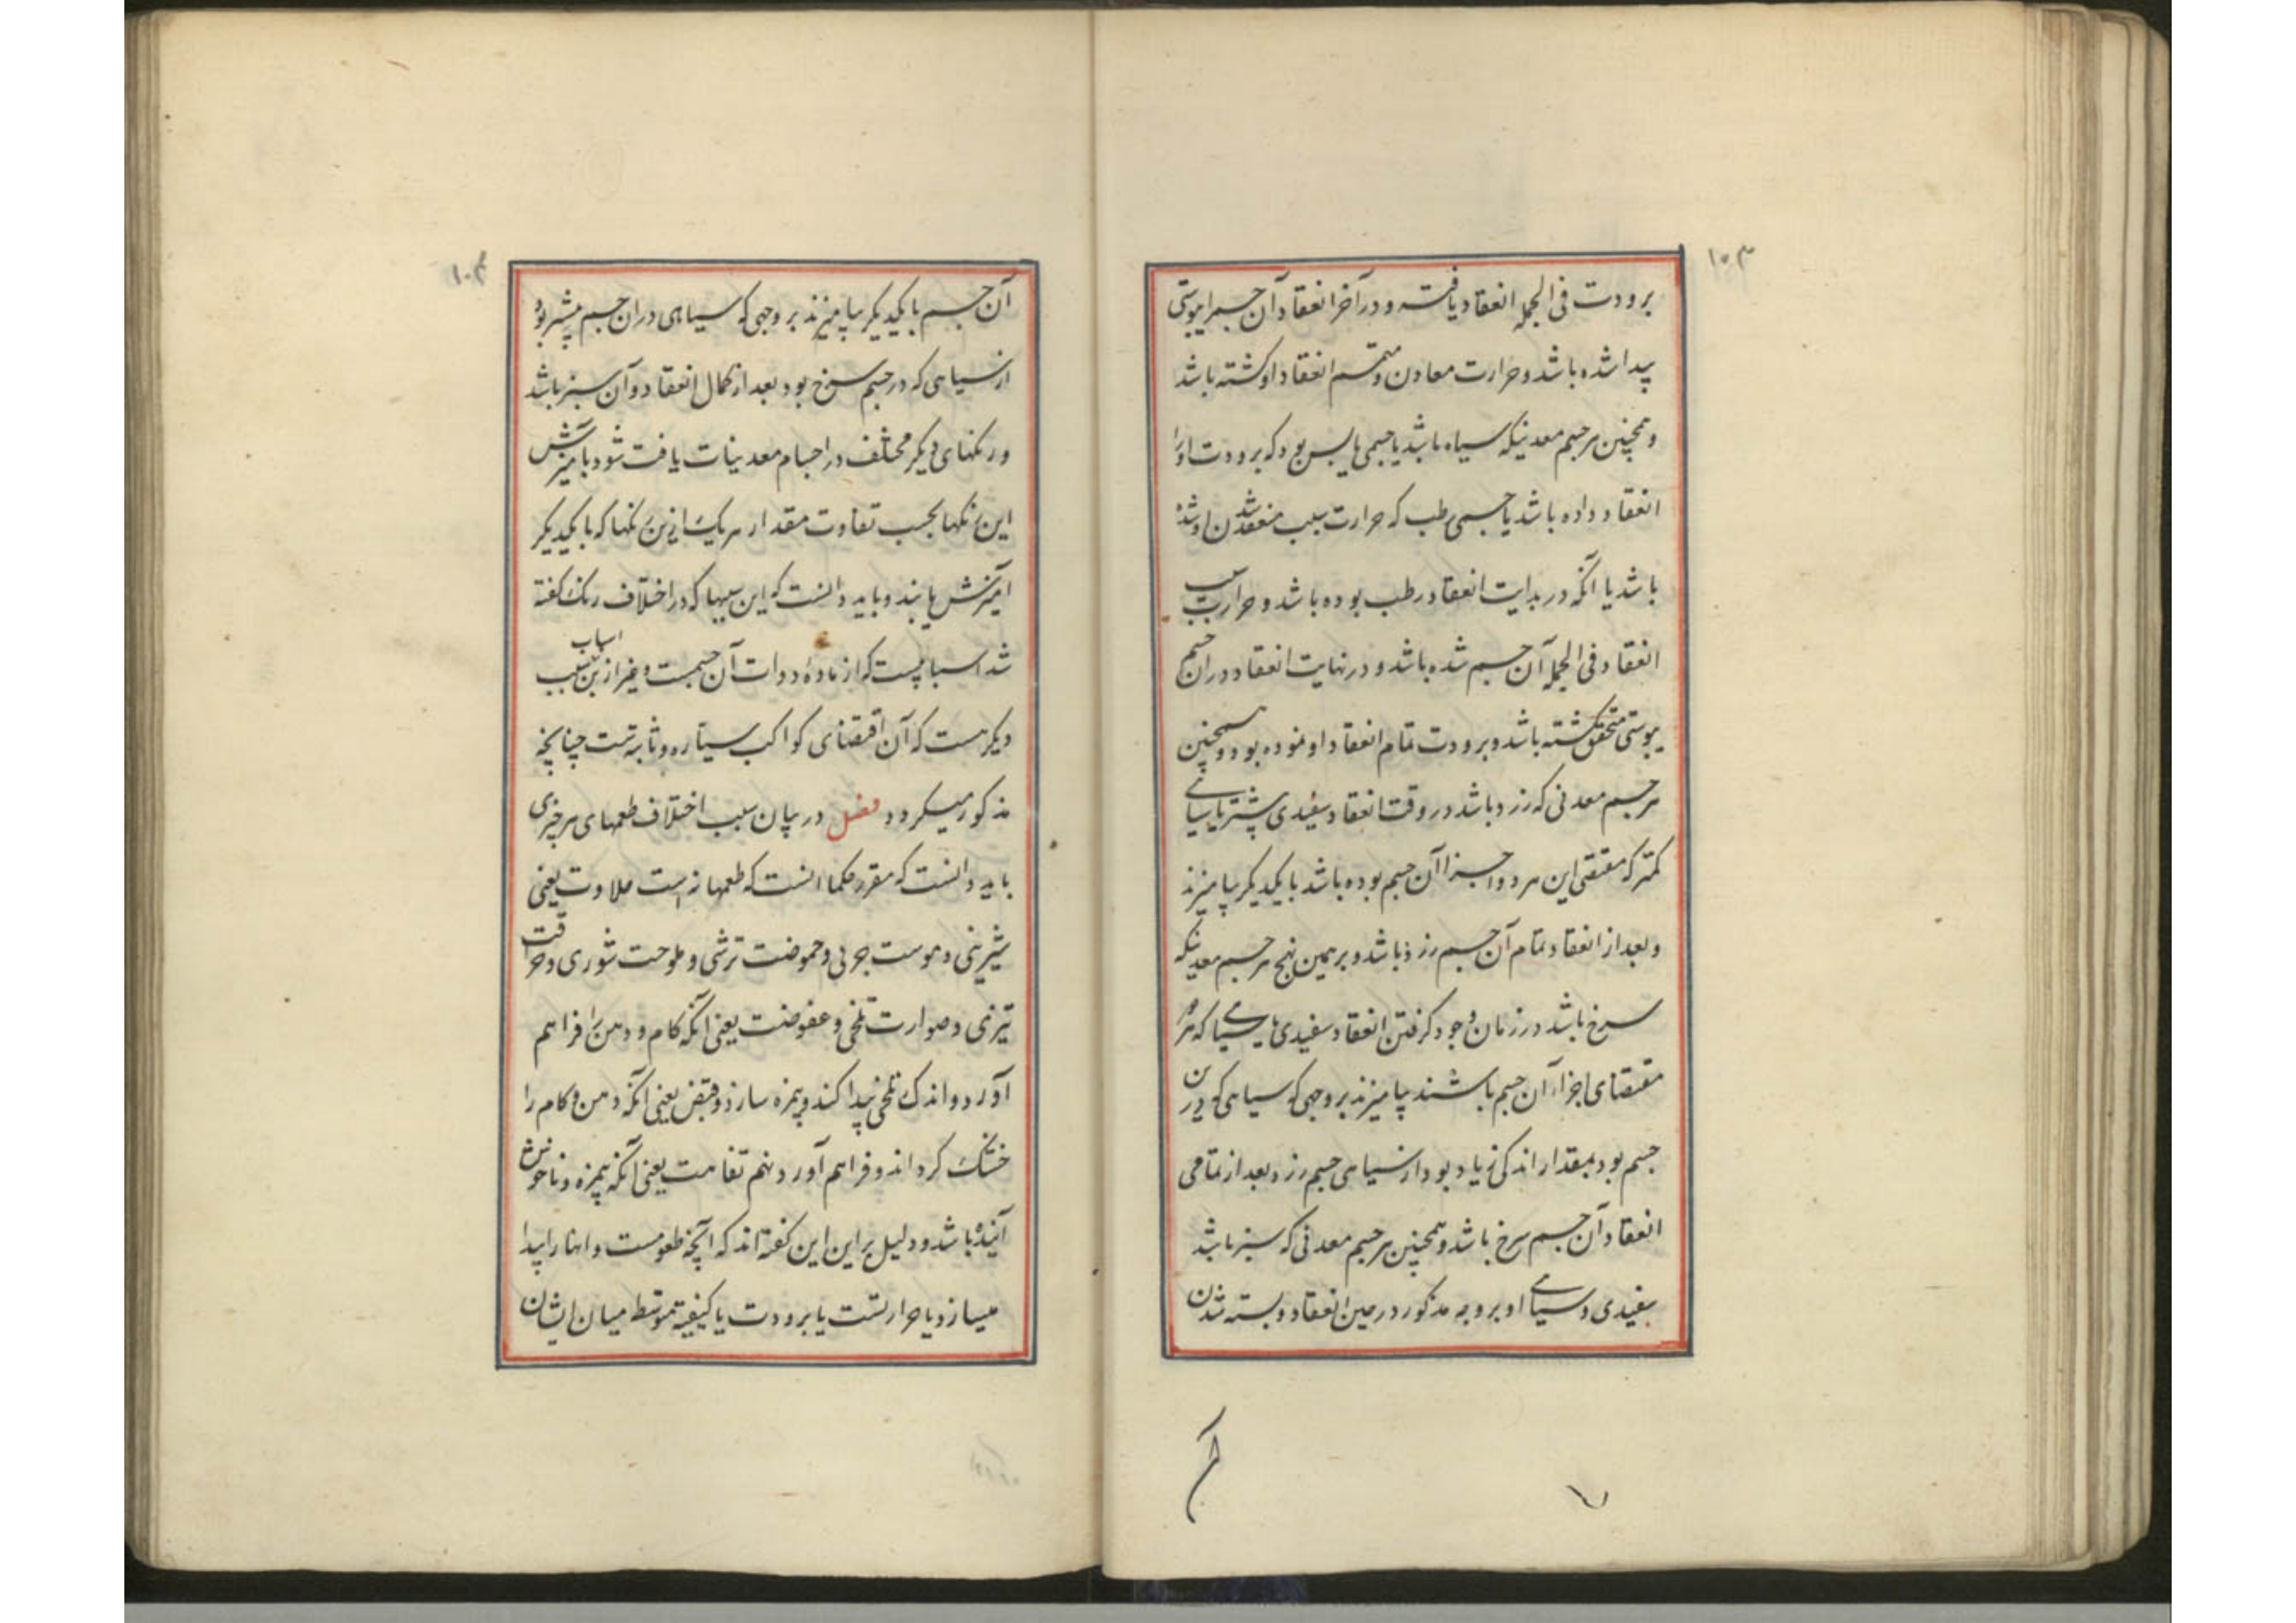 ۱۰۳
برودت فی الجمله انعقاد یافته و در آخر انعقاد آن جسم را یبوستی
پیدا شده باشد و حرارت معادن و متمم انعقاد او کشته باشد
و همچنین هر جسم معدنیکه سیاه باشد یا جسمی یابس بود که برودت او را
انعقاد داده باشد یا جسمی رطب که حرارت سبب منعقد شدن او شده
باشد یا آنکه در بدایت انعقاد رطب بوده باشد و حرارت سبب
انعقاد فی الجمله آن جسم شده باشد و در نهایت انعقاد در ان جسم
یبوستی متحقق کشته باشد و برودت تمام انعقاد او نموده بود و همچنین
هر جسم معدنی که زرد باشد در وقت انعقاد سفیدی بیشتر با سیاهی
کمتر که مقتضی این هر دو اجزا آن جسم بوده باشد با یکدیکر بیامیزند
و بعد از انعقاد تمام آن جسم زرد باشد و بر همین نهج هر جسم معدنیکه
سرخ باشد در زمان وجود کرفتن انعقاد سفیدی با سیاهی که هر دو
مقتضای اجزاء آن جسم باشند بیامیزند بر وجهی که سیاهی که درین
جسم بود بمقدار اندکی زیاد بود از سیاهی جسم زرد بعد از تمامی
انعقاد آن جسم سرخ باشد و همچنین هر جسم معدنی که سبز باشد
سفیدی و سیاهی او بر وجه مذکور در حین انعقاد و بسته شدن
آن
۱۰۴
آن جسم با یکدیکر بیامیزند بر وجهی که سیاهی در ان جسم بیشتر بود
از سیاهی که در جسم سرخ بود بعد از کمال انعقاد و آن سبز باشد
و رنکهای دیکر مختلف در اجسام معدنیات یافت شود بآمیزش
این رنکها بحسب تفاوت مقدار هر یک ازین رنکها که با یکدیکر
امیزش یابند و باید دانست که این سببها که در اختلاف رنک کفته
شد اسبابیست که از ماده و ذات آن جسمست و غیر ازین سبب اسباب
دیکر هست که آن اقتضای کواکب سیاره و ثابتست چنانچه
مذکور میکردد فصل در بیان سبب اختلاف طعمهای هر چیزی
باید دانست که مقرر حکما انست که طعمها نه است حلاوت یعنی
شیرینی دسومت چربی و حموضت ترشی و ملوحت شوری و حرافت
تیزی و مرارت تلخی و عفوضت یعنی انکه کام و دهن را فراهم
آورد و اندک تلخی پیدا کند و بیمزه سازد و قبض یعنی انکه دهن و کام را
خشک کرداند و فراهم آورد و نهم تفاهت یعنی آنکه بیمزه و ناخوش
آینده باشد و دلیل بر این این کفته اند که آنچه طعومست و انها را پیدا
میسازد یا حرارتست یا برودت یا کیفیة متوسط میان ایشان